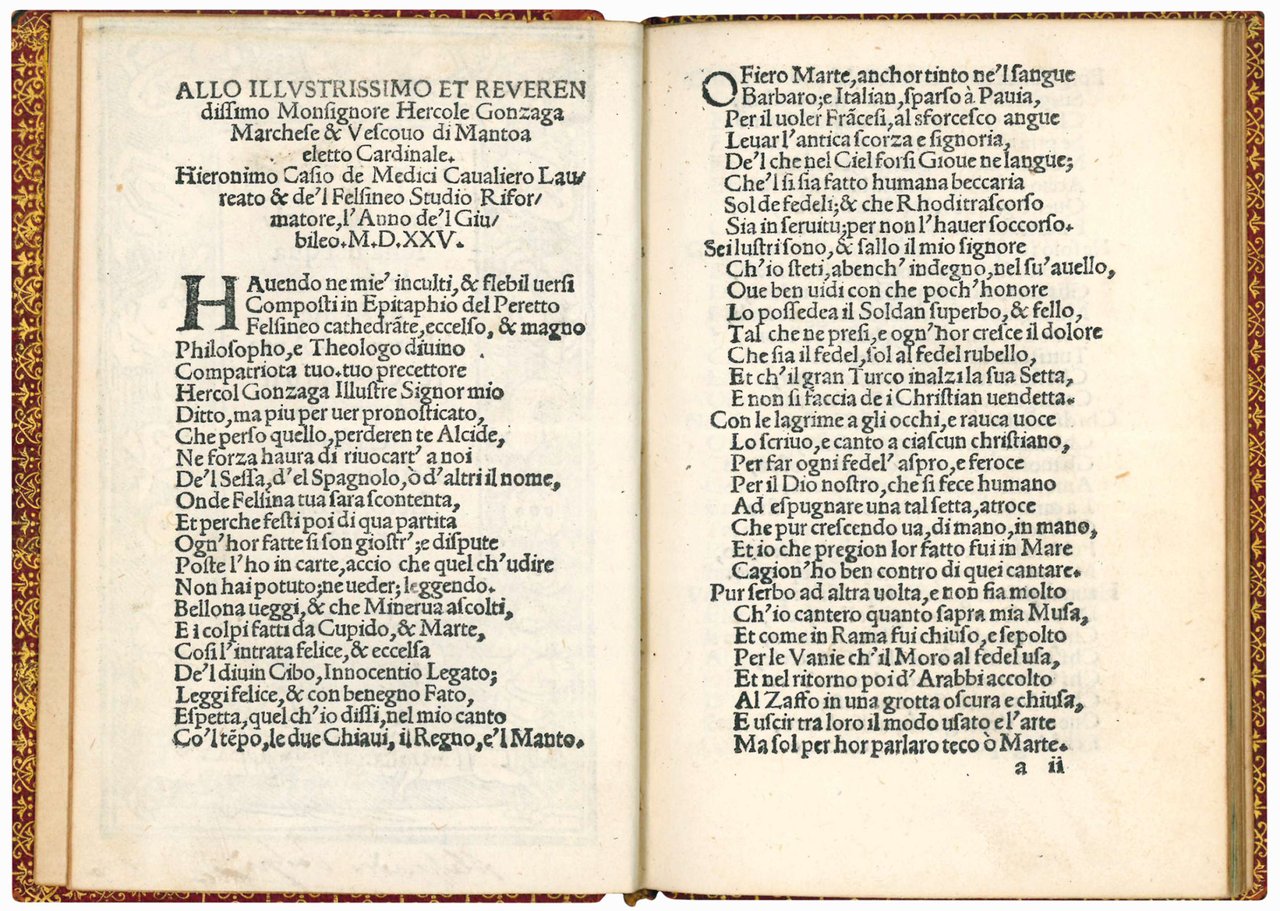 ALLO ILLVSTRISSIMO ET REVEREN
dissimo Monsignore Hercole Gonzaga
Marchese & Vescouo di Mantoa
eletto Cardinale.
Hieronimo Casio de Medici Caualiero Lau/
reato & de'l Felsineo Studio Rifor/
matore, l'Anno de'l Giu/
bileo. M. D. XXV.
HAuendo ne mie' inculti, & flebil uersi
Composti in Epitaphio del Peretto
Felsineo cathedrāte, eccelso, & magno
Philosopho, e Theologo diuino
Compatriota tuo. tuo precettore
Hercol Gonzaga Illustre Signor mio
Ditto, ma piu per uer pronosticato,
Che perso quello, perderen te Alcide,
Ne forza haura di riuocart' a noi
De'l Sessa, d'el Spagnolo, ò d'altri il nome,
Onde Felsina tua sara scontenta,
Et perche festi poi di qua partita
Ogn'hor fatte si son giostr'; e dispute
Poste l'ho in carte, accio che quel ch'udire
Non hai potuto; ne ueder; leggendo.
Bellona ueggi, & che Minerua ascolti,
E i colpi fatti da Cupido, & Marte,
Cosi l'intrata felice, & eccelsa
De'l diuin Cibo, Innocentio Legato;
Leggi felice, & con benegno Fato,
Espetta, quel ch'io dissi, nel mio canto
Co'l tēpo, le due Chiaui, il Regno, e'l Manto.
O Fiero Marte, anchor tinto ne'l sangue
Barbaro; e Italian, sparso à Pauia,
Per il uoler Frācesi, al sforcesco angue
Leuar l'antica scorza e signoria,
De'l che nel Ciel forsi Gioue ne langue;
Che'l si sia fatto humana beccaria
Sol de fedeli; & che Rhodi trascorso
Sia in seruitu; per non l'hauer soccorso.
Sei lustri sono, & sallo il mio signore
Ch'io steti, abench' indegno, nel su' auello,
Oue ben uidi con che poch' honore
Lo possedea il Soldan superbo, & fello,
Tal che ne presi, e ogn'hor cresce il dolore
Che sia il fedel, sol al fedel rubello,
Et ch'il gran Turco inalzi la sua Setta,
E non si faccia de i Christian uendetta.
Con le lagrime a gli occhi, e rauca uoce
Lo scriuo, e canto a ciascun christiano,
Per far ogni fedel' aspro, e feroce
Per il Dio nostro, che si fece humano
Ad espugnare una tal setta, atroce
Che pur crescendo ua, di mano, in mano,
Et io che pregion lor fatto fui in Mare
Cagion' ho ben contro di quei cantare.
Pur serbo ad altra uolta, e non fia molto
Ch'io cantero quanto sapra mia Musa,
Et come in Rama fui chiuso, e sepolto
Per le Vanie ch'il Moro al fedel usa,
Et nel ritorno poi d'Arabbi accolto
Al Zaffo in una grotta oscura e chiusa,
E uscir tra loro il modo usato e l'arte
Ma sol per hor parlaro teco ò Marte.
a ii